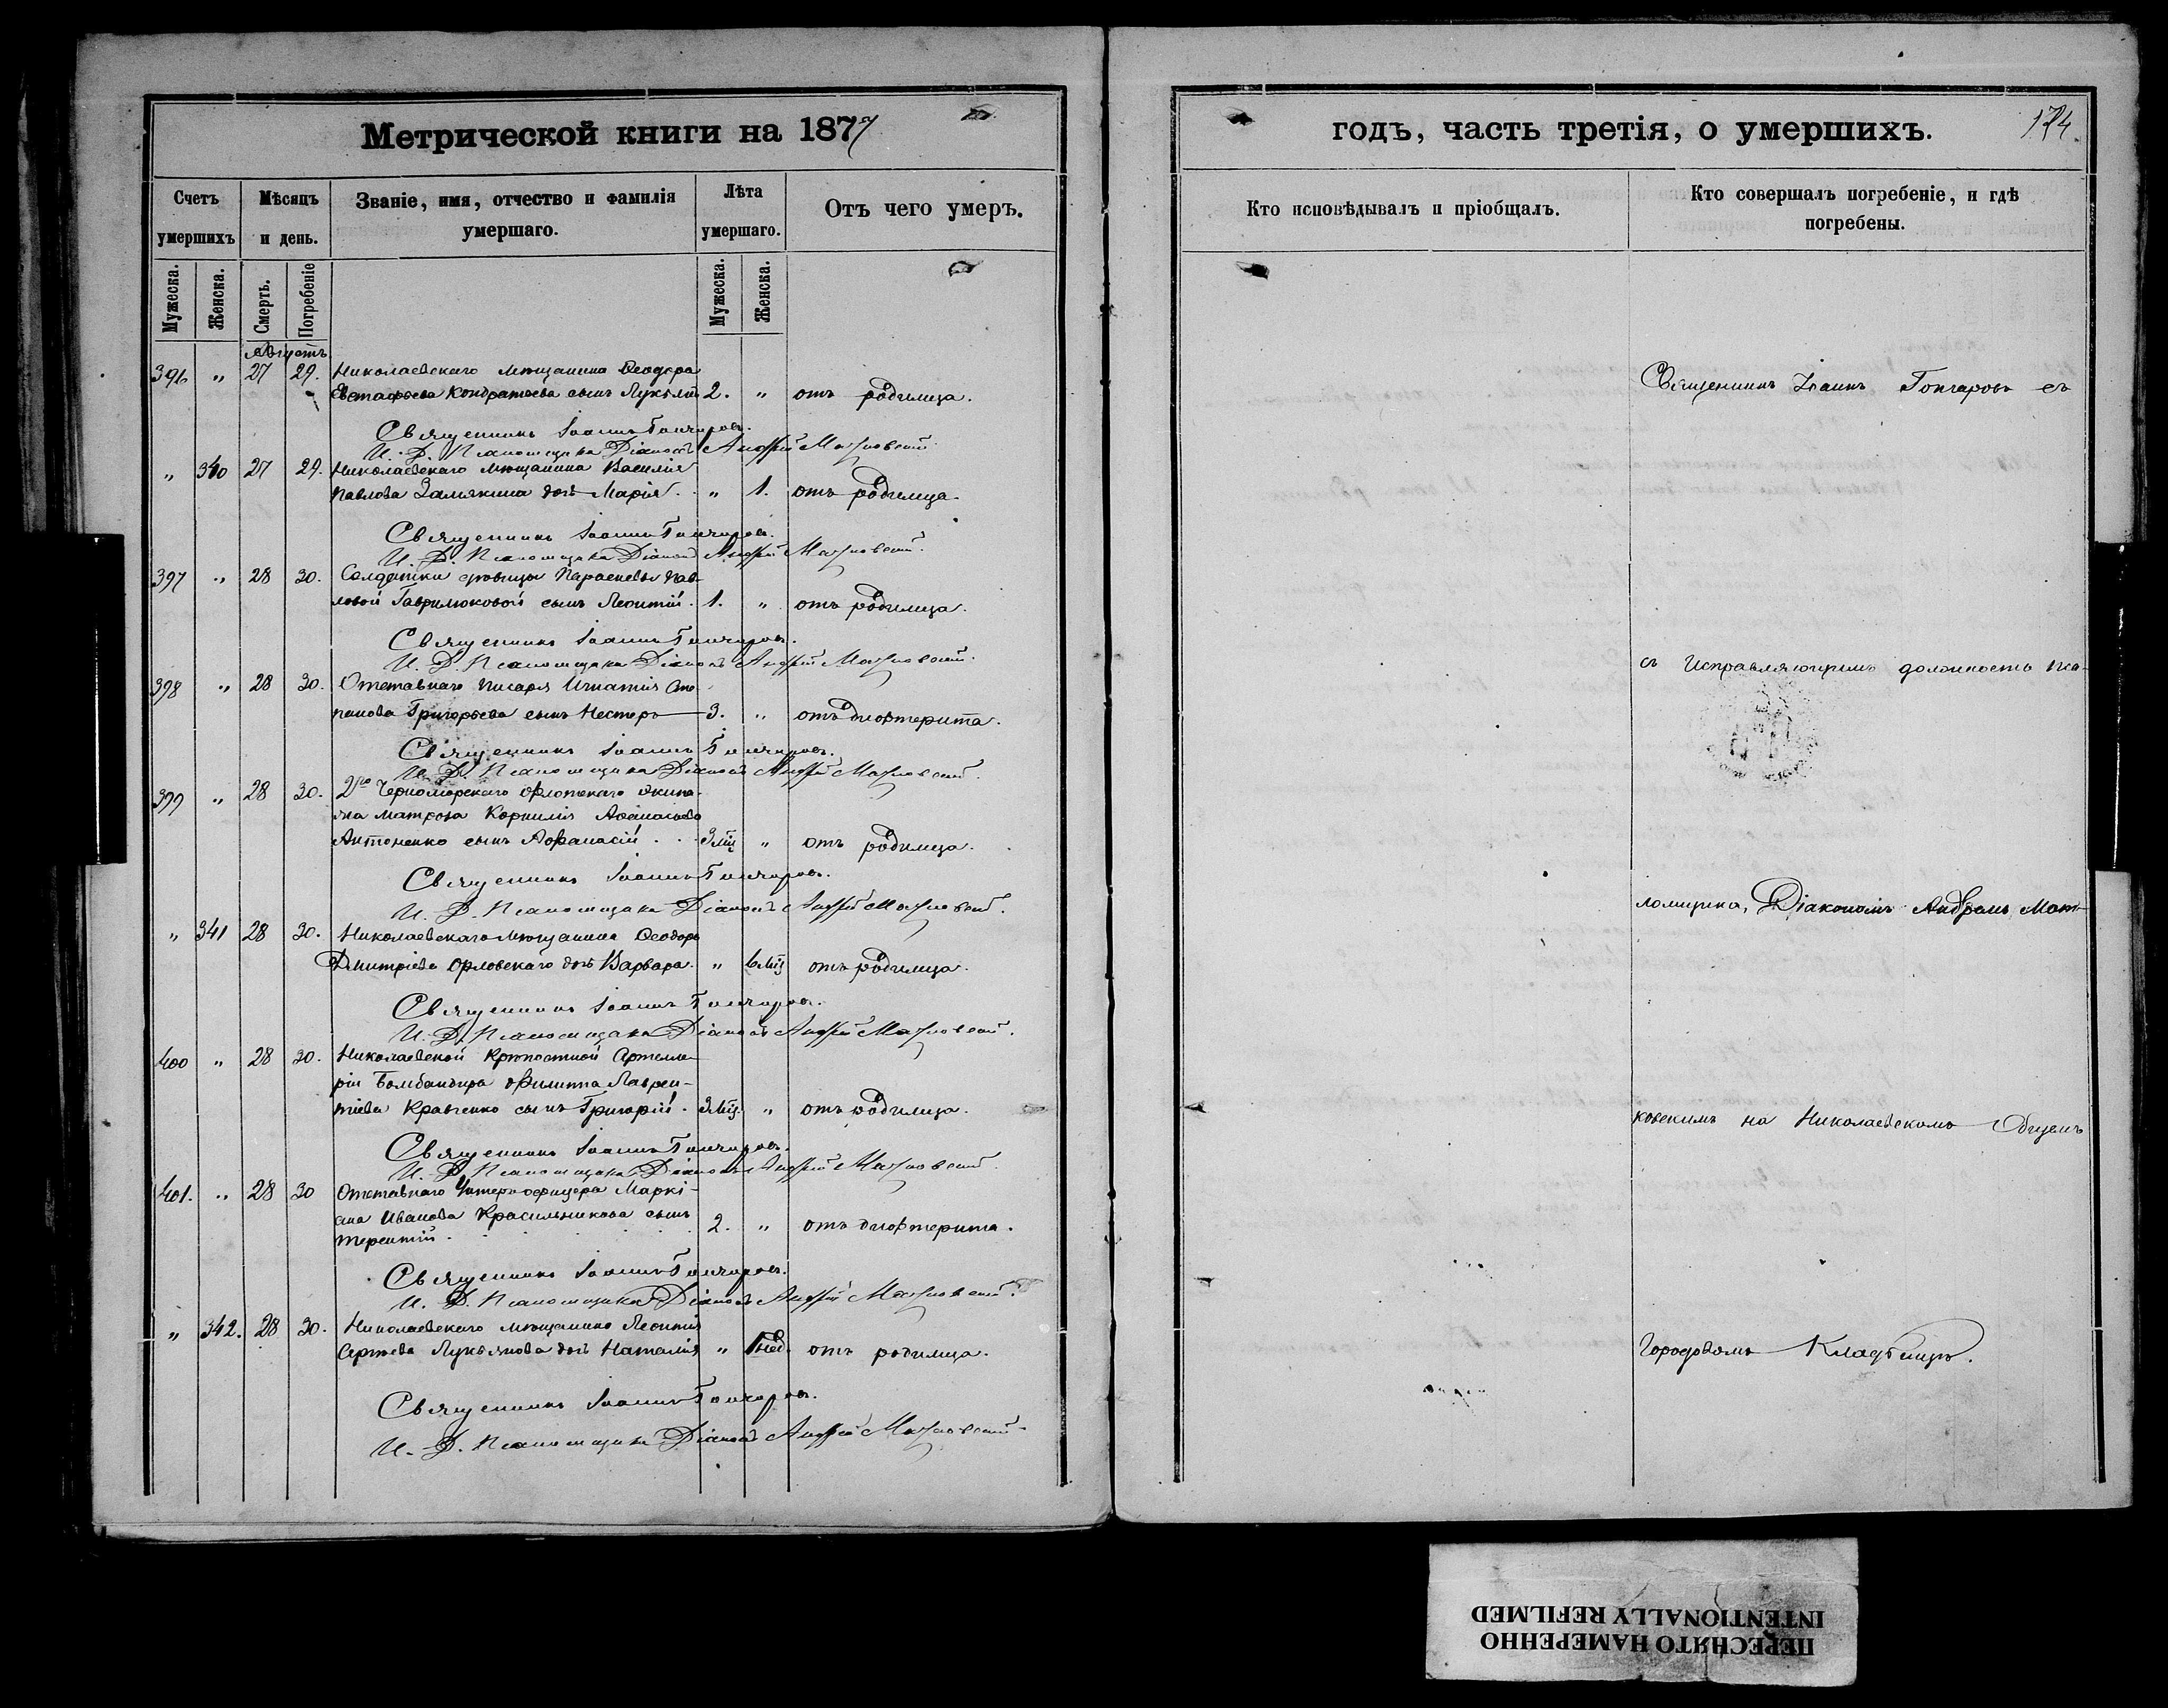 Метрической книги на 1877
годъ, часть третія, о умершихъ.
174
Счетъ умершихъ
Мѣсяцъ и день.
Званіе, имя, отчество и фамилія умершаго.
Лѣта умершаго.
Отъ чего умеръ.
Кто исповѣдывалъ и пріобщалъ.
Кто совершалъ погребеніе, и гдѣ погребены.
Мужеска.
Женска.
Смерть.
Погребеніе
Мужеска.
Женска.
Августъ
396 " 27 29. Николаевскаго мѣщанина Ѳеодора
Евстафьева Кондратьева сынъ 2. " отъ родимца.
Священникъ Іоаннъ Гончаровъ.
И. Д. Псаломщика Діаконъ Андрей
" 340 27 29. Николаевскаго мѣщанина Василія
Павлова Замякина дочь Марія. " 1. отъ родимца.
Священникъ Іоаннъ Гончаровъ.
И. Д. Псаломщика Діаконъ Андрей
397 " 28 30. Солдатки вдовицы Параскевы Пав-
ловой Гаврилюковой сынъ Леонтій. 1. " отъ родимца.
Священникъ Іоаннъ Гончаровъ.
И. Д. Псаломщика Діаконъ Андрей
398 " 28 30. Отставнаго писаря Игнатія Сте-
панова Григорьева сынъ Несторъ 3. " отъ дифтерита.
Священникъ Іоаннъ Гончаровъ.
И. Д. Псаломщика Діаконъ Андрей
399 " 28 30. 2го Черноморскаго Флотскаго экипа-
жа матроса Корнилія Аѳанасьева
Антоненко сынъ Аѳанасій . . 3 мѣс. " отъ родимца.
Священникъ Іоаннъ Гончаровъ.
И. Д. Псаломщика Діаконъ Андрей
" 341 28 30. Николаевскаго мѣщанина Ѳеодора
Дмитріева Орловскаго дочь Варвара. " 6 мѣс. отъ родимца.
Священникъ Іоаннъ Гончаровъ.
И. Д. Псаломщика Діаконъ Андрей
400 " 28 30. Николаевской Крѣпостной Артилле-
ріи Бомбандира Филиппа Лаврен-
тіева Кравченко сынъ Григорій. 3 мѣс. " отъ родимца.
Священникъ Іоаннъ Гончаровъ.
И. Д. Псаломщика Діаконъ Андрей
401. " 28 30 Отставнаго Унтеръ-офицера Маркі-
ана Иванова Красильникова сынъ
Терентій. 2. " отъ дифтерита.
Священникъ Іоаннъ Гончаровъ.
И. Д. Псаломщика Діаконъ Андрей
" 342. 28 30. Николаевскаго мѣщанина Леонтія
Сергѣева Лукьянова дочь Наталія " 1 нед. отъ родимца.
Священникъ Іоаннъ Гончаровъ.
И. Д. Псаломщика Діаконъ Андрей
Священникъ Іоаннъ Гончаровъ съ
съ Исправляющимъ должность пса-
ломщика, Діакономъ
ковскимъ на Николаевскомъ Общемъ
Городовомъ Кладбищѣ.
ПЕРЕСНЯТО НАМЕРЕННО
INTENTIONALLY REFILMED